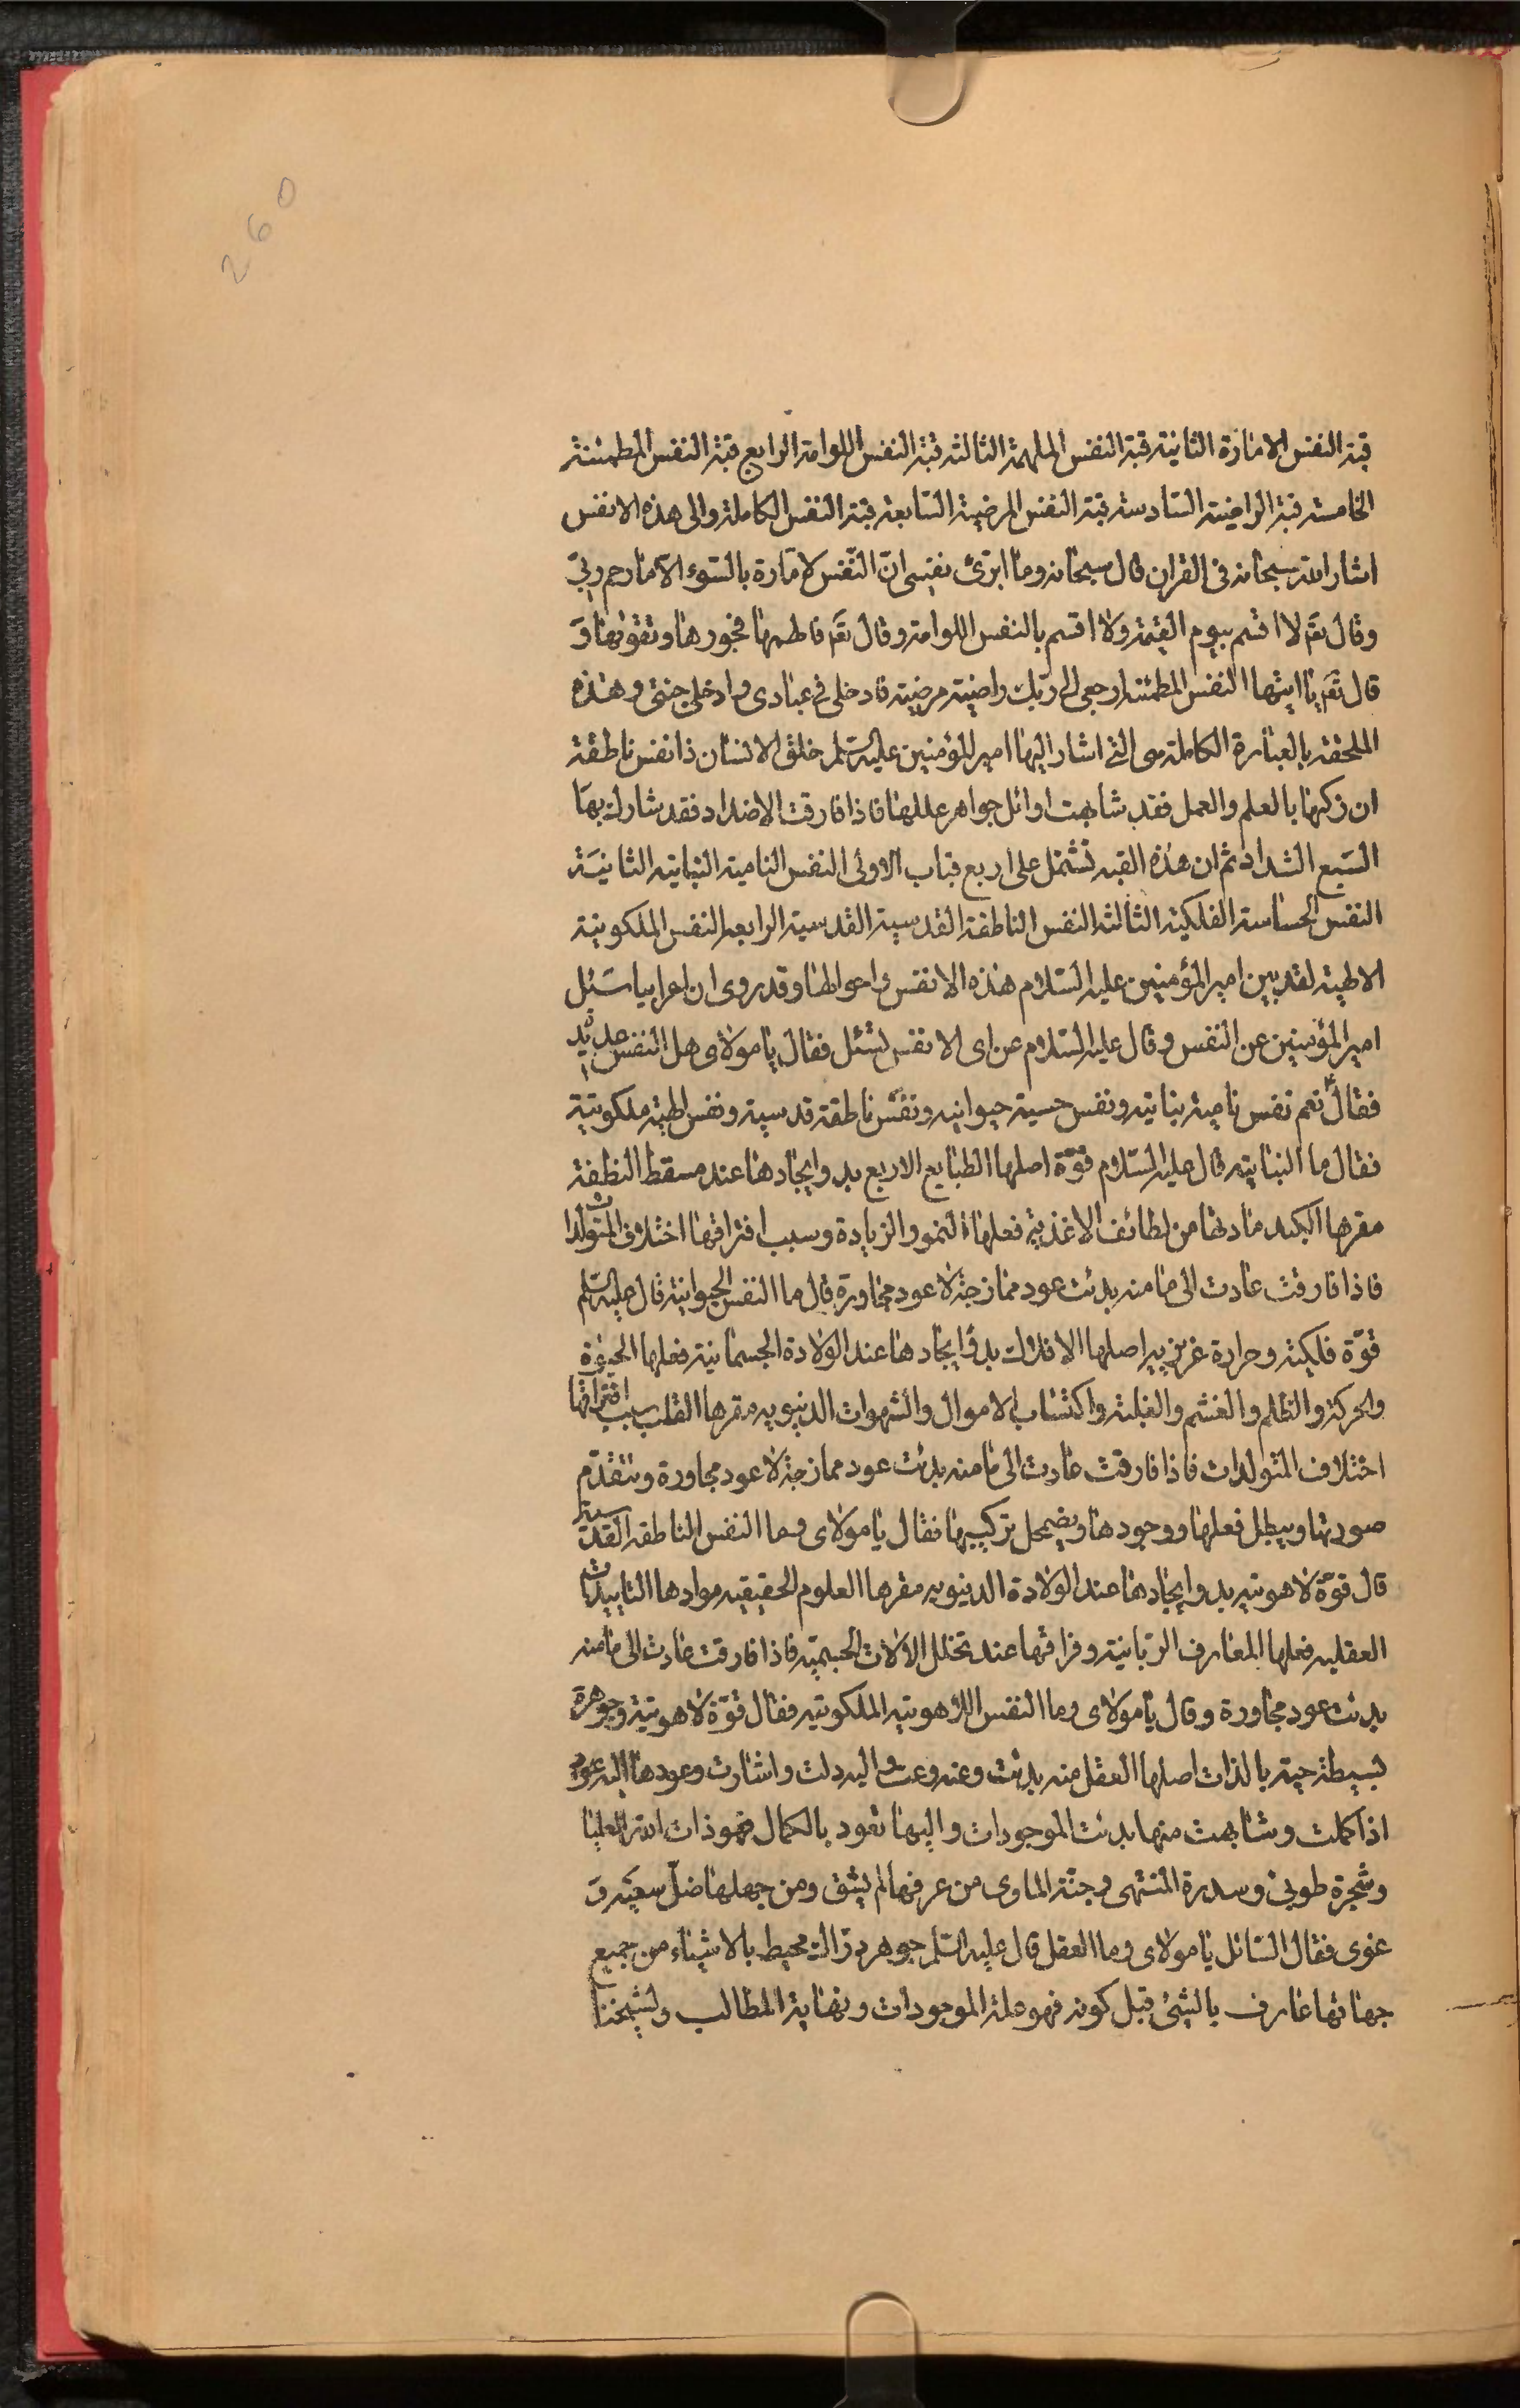 260
قبة النفس الامارة الثانية قبة النفس الملهمة الثالثة قبة النفس اللوامة الرابع قبة النفس المطمئنة
الخامسة قبة الراضية السادسة قبة النفس المرضية السابعة قبة النفس الكاملة والى هذه الانفس
اشار الله سبحانه فى القران قال سبحانه وما ابرئ نفسى انّ النّفس لامّارة بالسّوء الّا ما رحم ربّى
وقال تعَ لا اقسم بيوم القيمة ولا اقسم بالنفس اللوامة وقال تعَ فالهمها فجورها وتقوٰيها وَ
قال تعَ يا ايتها النفس المطمئنة ارجعى الى ربّك راضية مرضية فادخلى فى عبادى وادخلى جنتى وهذه
الملحقة بالعبارة الكاملة هى التى اشار اليها امير المؤمنين عليه السّلم خلق الانسان ذا نفس ناطقة
ان زكيها بالعلم والعمل فقد شابهت اوائل جواهر عللها فاذا فارقت الاضداد فقد شارك بهَا
السّبع الشداد ثم ان هذه القبه تشتمل على اربع قباب الاولى النفس النامية النباتية الثانيَة
النفس الحساسة الفلكية الثالثة النفس الناطقة القدسية القدسية الرابعه النفس الملكوتية
الالهية لقد بين امير المؤمنين عليه السّلام هذه الانفس واحوالها وقد روى ان اعرابيا سَئل
امير المؤمنين عن النفس وقال عليه السّلام عن اى الانفس تسئل فقال يا مولاى هل النفس عديدة
فقال ع نعم نفس نامية نباتيه ونفس حسية حيوانيه ونفس ناطقة قدسية ونفس الهية ملكوتية
فقال ما النباتيه قال عليه السّلام قوّة اصلها الطبايع الاربع بدو ايجادها عند مسقط النطفة
مقرها الكبد مادتها من لطائف الاغذية فعلها النمو والزيادة وسبب افتراقها اختلاف المتولدات
فاذا فارقت عادت الى ما منه بدئت عود ممازجة لا عود مجاورة قال ما النفس الحيوانية قال عليه السّلم
قوّة فلكية وحرارة غريزيه اصلها الافلاك بدؤ ايجادها عند الولادة الجسمانية فعلها الحيوٰة
والحركة والظلم والغشم والغلبة واكتساب الاموال والشهوات الدنيويه مقرها القلب سبب افتراقها
اختلاف المتولدات فاذا فارقت عادت الى ما منه بدئت عود ممازجة لا عود مجاورة وتنقدم
صورتها ويبطل فعلها ووجودها ويضمحل تركيبها فقال يا مولاى وما النفس الناطقه القدسية
قال قوّة لاهوتيه بدو ايجادها عند الولادة الدنيويه مقرها العلوم الحقيقيه موادها التاييدات
العقليه فعلها المعارف الرّبانية وفراقها عند تخلل الالات الجسمّيه فاذا فارقت عادت الى ما منه
بدئت عود مجاورة وقال يا مولاى وما النفس اللاهوتيه الملكوتيه فقال قوّة لاهوتية وجوهرة
بسيطة حيّة بالذات اصلها العقل منه بدئت وعنه وعت واليه دلت واشارت وعودها اليه
اذا كملت وشابهت منها بدئت الموجودات واليها تعود بالكمال فهو ذات الله العليا
وشجرة طوبى وسدرة المنتهى وجنّة الماوى من عرفها لم يشق ومن جهلها ضلّ سعيَه وَ
غوى فقال السّائل يا مولاى وما العقل قال عليه السّلم جوهر درّاك محيط بالاشياء من جميع
جهاتها عارف بالشئ قبل كونه فهو علة الموجودات ونهاية المطالب ولشيخنا